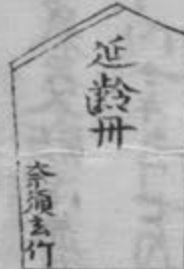 延齡冊
奈須玄竹